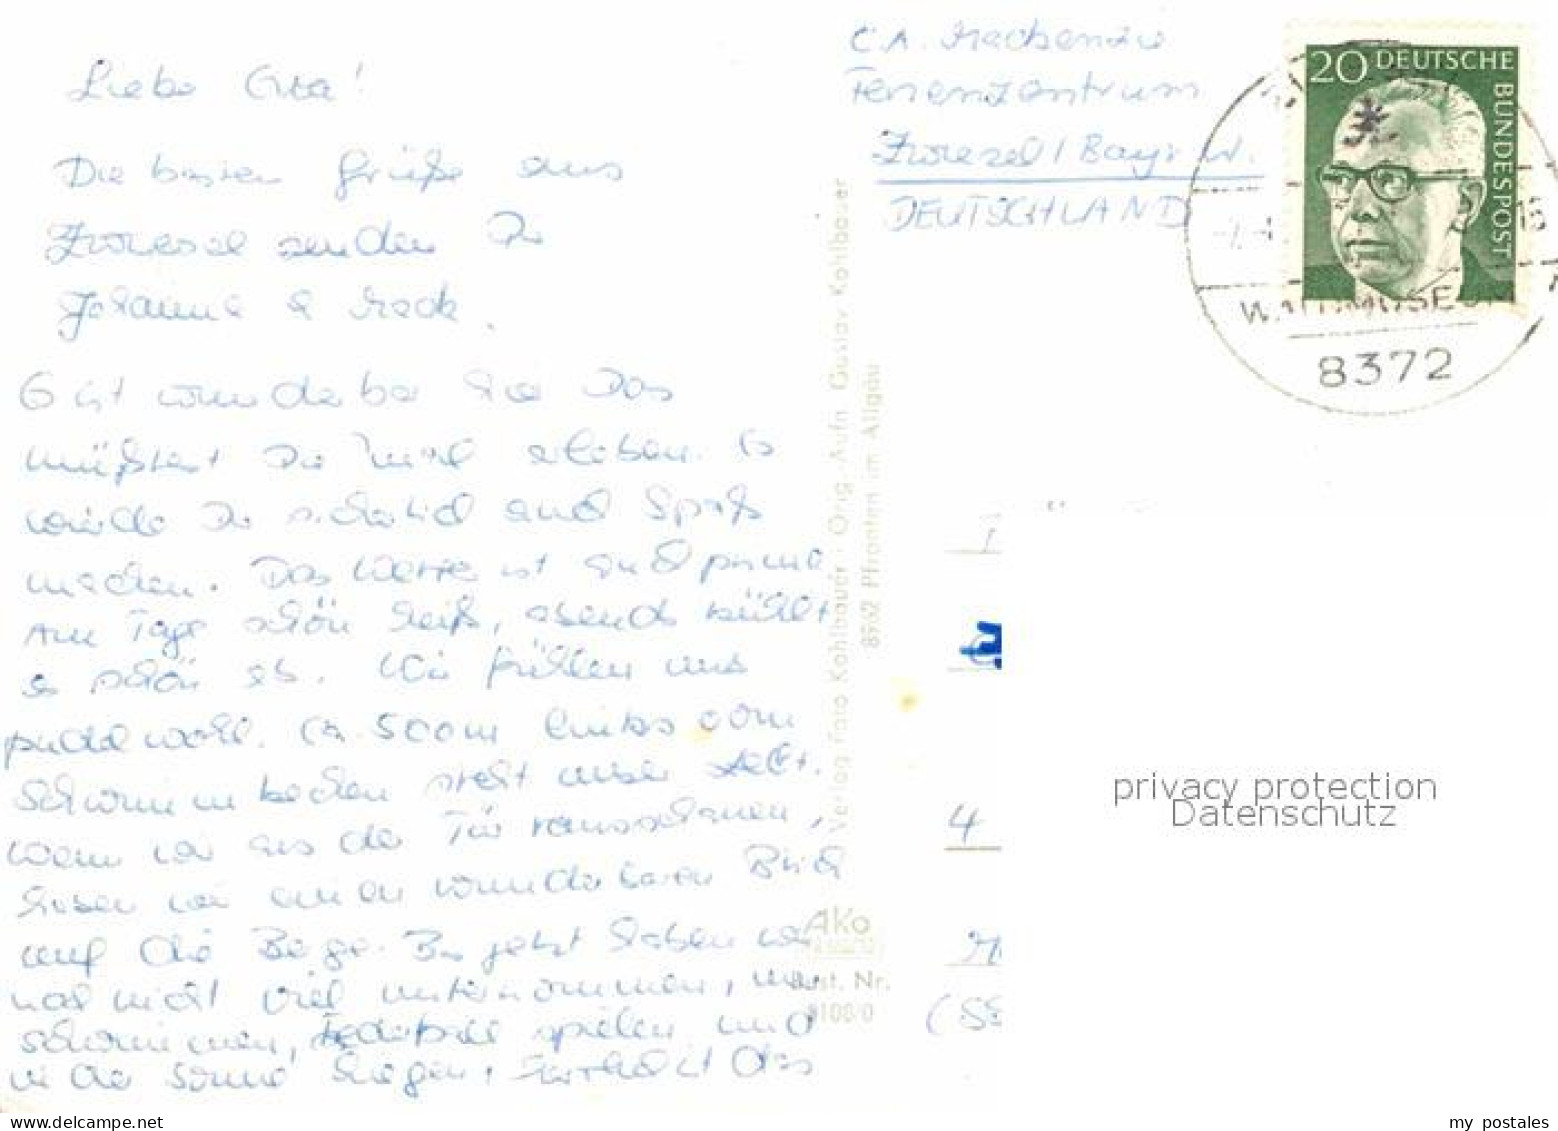 Liebe Gita!
Die besten Grüße aus
Zwiesel senden Dir
Johanna & Mack.
Es ist wunderbar hier Das
müßtest Du mal erleben. Es
würde Dir sicherlich auch Spaß
machen. Das Wetter ist auch prima
Am Tage schön heiß, abends kühlt
es schön ab. Wir fühlen uns
pudelwohl. Ca. 500m links vom
Schwimmbecken steht unser Zelt.
Wenn wir aus der Tür rausschauen,
haben wir einen wunderbaren Blick
auf die Berge. Bis jetzt haben wir
noch nicht viel unternommen, nur
schwimmen, Federball spielen und
in der Sonne liegen, ist das
C.A. Mackenzie
Ferienzentrum
Zwiesel / Bayr. W.
DEUTSCHLAND
20 DEUTSCHE BUNDESPOST
WALDMUSEUM
8372
Verlag Foto Kohlbauer · Orig.-Aufn. Gustav Kohlbauer
8962 Pfronten im Allgäu
AKo
Best. Nr.
4
privacy protection
Datenschutz
my postales